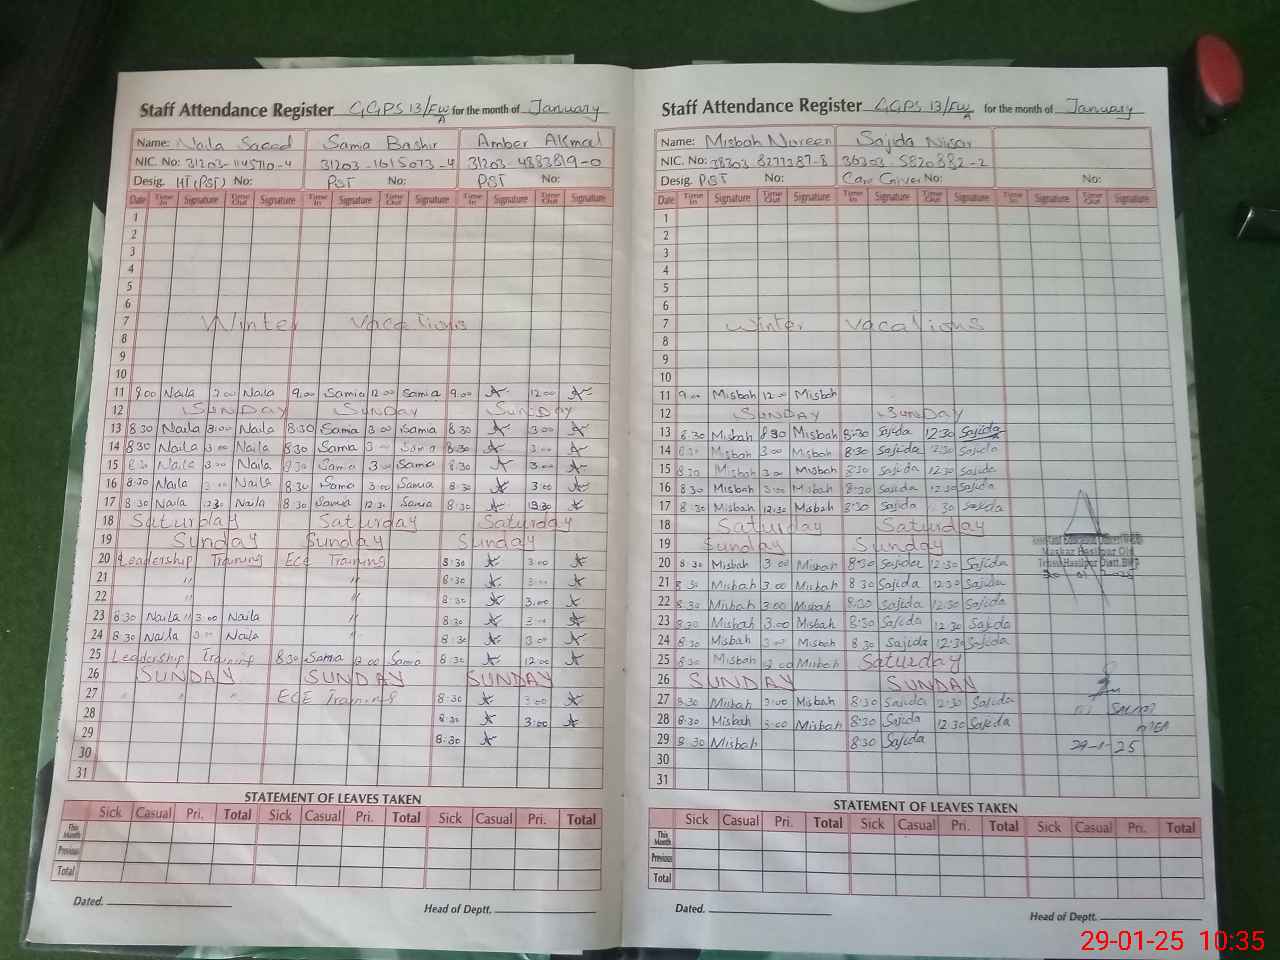 Staff Attendance Register GGPS 13/FW A for the month of January
Name: Naila Saeed Samia Bashir Amber Akmal
NIC. No: 31203-1145710-4 31203-1615073-4 31203-4883819-0
Desig. HT (PST) No: PST No: PST No:
Date Time In Signature Time Out Signature Time In Signature Time Out Signature Time In Signature Time Out Signature
1
2
3
4
5
6
7 Winter Vacations
8
9
10
11 9.00 Naila Naila 9.00 Samia 12.00 Samia 9.00 12.00
12 SUNDAY SUNDAY SUNDAY
13 8:30 Naila 3:00 Naila 8:30 Samia 3:00 Samia 8:30 3:00
14 8:30 Naila 3:00 Naila 8:30 Samia 3:00 Samia 8:30 3:00
15 8:30 Naila 3:00 Naila 8:30 Samia 3:00 Samia 8:30 3:00
16 8:30 Naila 3:00 Naila 8:30 Samia 3:00 Samia 8:30 3:00
17 8:30 Naila 12:30 Naila 8:30 Samia 12:30 Samia 8:30
18 Saturday Saturday Saturday
19 Sunday Sunday Sunday
20 Leadership Training ECE Training 8:30 3:00
21 " " 8:30 3:00
22 " " 8:30 3:00
23 8:30 Naila 3:00 Naila " 8:30 3:00
24 8:30 Naila 3:00 Naila " 8:30 3:00
25 Leadership Training 8:30 Samia Samia 8:30 12:00
26 SUNDAY SUNDAY SUNDAY
27 " " " ECE Training 8:30 3:00
28 8:30 3:00
29 8:30
30
31
STATEMENT OF LEAVES TAKEN
Sick Casual Pri. Total Sick Casual Pri. Total Sick Casual Pri. Total
This Month
Previous
Total
Dated. Head of Deptt.
Staff Attendance Register GGPS 13/FW A for the month of January
Name: Misbah Nureen Sajida Nisar
NIC. No: 38303-8277387-8 36303-5820882-2
Desig. PST No: Care Giver No: No:
Date Time In Signature Time Out Signature Time In Signature Time Out Signature Time In Signature Time Out Signature
1
2
3
4
5
6
7 Winter Vacations
8
9
10
11 9.00 Misbah 12.00 Misbah
12 SUNDAY SUNDAY
13 8:30 Misbah 8:30 Misbah 8:30 Sajida 12:30 Sajida
14 8:30 Misbah 3:00 Misbah 8:30 Sajida 12:30 Sajida
15 8:30 Misbah 3:00 Misbah 8:30 Sajida 12:30 Sajida
16 8:30 Misbah 3:00 Misbah 8:30 Sajida 12:30 Sajida
17 8:30 Misbah 12:30 Misbah 8:30 Sajida 11:30 Sajida
18 Saturday Saturday
19 Sunday Sunday
20 8:30 Misbah 3:00 Misbah 8:30 Sajida 12:30 Sajida
21 8:30 Misbah 3:00 Misbah 8:30 Sajida 12:30 Sajida
22 8:30 Misbah 3:00 Misbah 8:30 Sajida 12:30 Sajida
23 8:30 Misbah 3:00 Misbah 8:30 Sajida 12:30 Sajida
24 8:30 Misbah 3:00 Misbah 8:30 Sajida 12:30 Sajida
25 8:30 Misbah 12:00 Misbah Saturday
26 SUNDAY SUNDAY
27 8:30 Misbah 3:00 Misbah 8:30 Sajida 12:30 Sajida
28 8:30 Misbah 3:00 Misbah 8:30 Sajida 12:30 Sajida
29 8:30 Misbah 8:30 Sajida 29-1-25
30
31
STATEMENT OF LEAVES TAKEN
Sick Casual Pri. Total Sick Casual Pri. Total Sick Casual Pri. Total
This Month
Previous
Total
Dated. Head of Deptt.
29-01-25 10:35